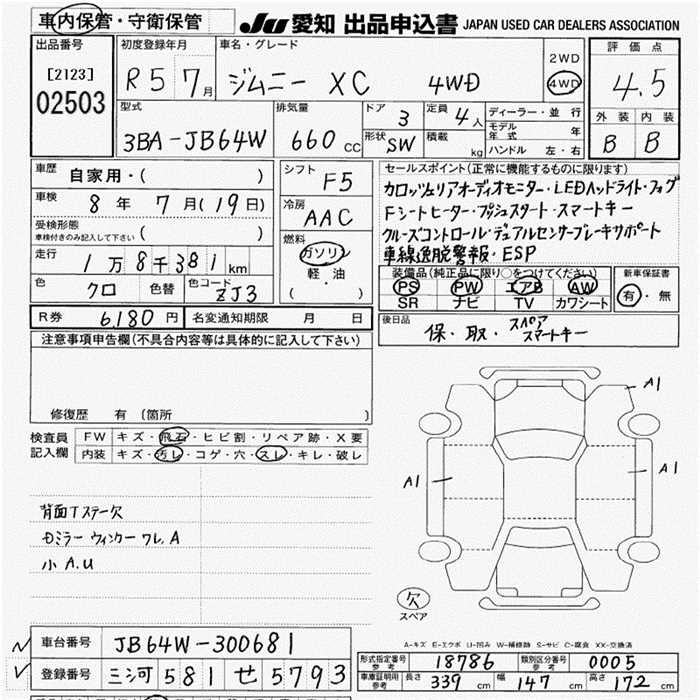 車内保管・守衛保管 JU 愛知 出品申込書 JAPAN USED CAR DEALERS ASSOCIATION
出品番号 初度登録年月 車名・グレード 評価点
[2123] R5 7月 ジムニー XC 4WD 2WD 4WD 4.5
02503
型式 排気量 ドア 3 定員 4人 ディーラー・並行 外装 内装
3BA-JB64W 660 CC 形状 SW 積載 kg モデル年式 年 B B
ハンドル 左・右
車歴 自家用・( ) シフト F5 セールスポイント(正常に機能するものに限ります)
車検 8年 7月(19日) 冷房 AAC カロッツェリアオーディオモニター・LEDヘッドライト・フォグ
受検形態 ( ) Fシートヒーター・プッシュスタート・スマートキー
車検付きのみ記入して下さい クルーズコントロール・デュアルセンサーブレーキサポート
走行 1万8千381km 燃料 ガソリン 車線逸脱警報・ESP
軽・油 装備品(純正品に限り○をつけてください) 新車保証書
色 クロ 色替 色コード ZJ3 ( ) PS PW エアB AW 有・無
SR ナビ TV カワシート
R券 6,180円 名変通知期限 月 日 後日品 保・取・スペアスマートキー
注意事項申告欄(不具合内容等は具体的に記入して下さい)
修復歴 有(箇所 )
検査員 FW キズ・飛石・ヒビ割・リペア跡・X要
記入欄 内装 キズ・汚レ・コゲ・穴・スレ・キレ・破レ
A1
A1 A1
背面Tステー欠
Dミラー ウィンカー ワレ.A
小A.U
欠
スペア
車台番号 JB64W-300681 A-キズ E-エクボ U-凹み W-補修跡 S-サビ C-腐食 XX-交換済
登録番号 三河 581 せ 5793 形式指定番号 参考 18786 類別区分番号 参考 0005
車庫証明用 参考 長さ 339cm 幅 147cm 高さ 172cm